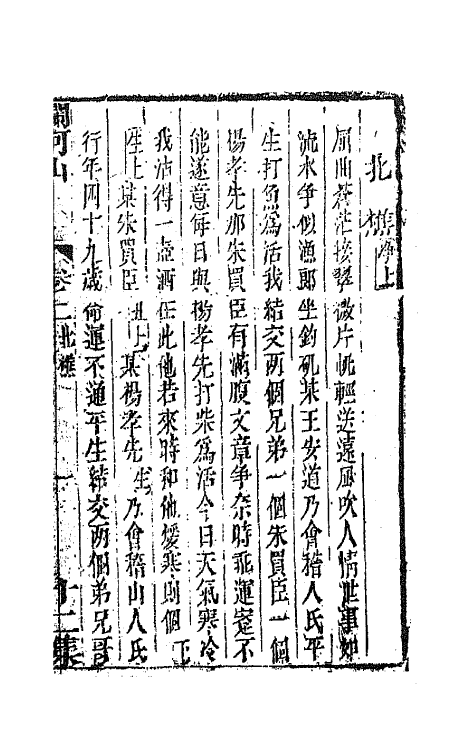 北樵 淨上
屈曲蒼茫接翠微片帆輕送遠風吹人情世事如
流水爭似漁郎坐釣磯某王安道乃會稽人氏平
生打魚為活我結交兩個兄弟一個朱買臣一個
楊孝先那朱買臣有滿腹文章爭奈時乖運蹇不
能遂意每日與楊孝先打柴為活今日天氣寒冷
我沽得一壺酒在此他若來時和他煖寒則個 下
上某朱買臣 丑上某楊孝先 生乃會稽山人氏
行年四十九歲命運不通平生結交兩個弟兄哥
闌可山 卷二 北樵 一 十二集